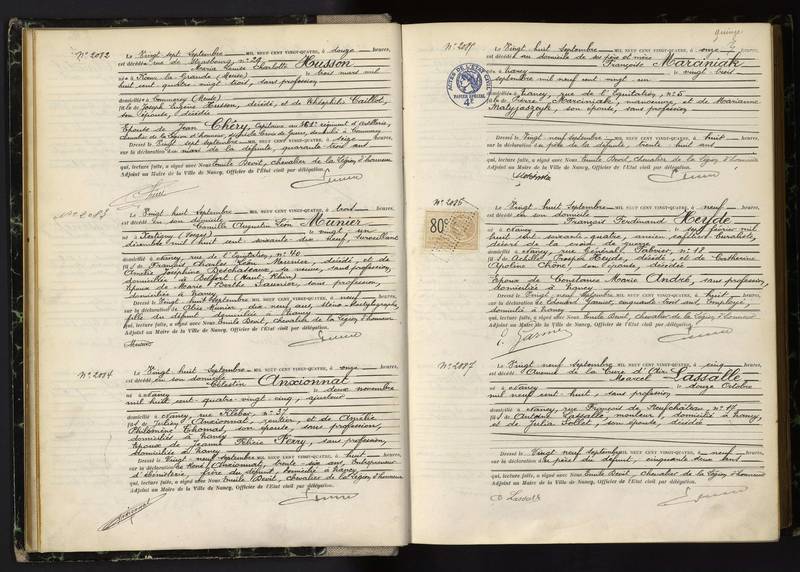 N° 2082
Le Vingt sept Septembre MIL NEUF CENT VINGT-QUATRE, à douze heures,
est décédé rue de Strasbourg n° 29
Marie Louise Charlotte Husson
née à Han la Grande (Meuse) le trois mars mil
huit cent quatre vingt trois, sans profession
domiciliée à Commercy (Meuse)
fille de Joseph Eugène Husson, décédé, et de Théophile Caillot,
son épouse, décédée
Epouse de Jean Chéry, Capitaine au régiment d'Artillerie,
Chevalier de la Légion d'honneur, Croix de Guerre, domicilié à Commercy
Dressé le Vingt sept Septembre à seize heures,
sur la déclaration du mari de la défunte, quarante trois ans
qui, lecture faite, a signé avec Nous Emile Bevit, Chevalier de la Légion d'honneur
Adjoint au Maire de la Ville de Nancy, Officier de l'État civil par délégation.
N° 2083
Le Vingt huit Septembre MIL NEUF CENT VINGT-QUATRE, à trois heures,
est décédé en son domicile
Camille Augustin Léon Munier
né à Bertigny (Vosges) le vingt un
décembre mil huit cent soixante dix neuf, surveillant
domicilié à Nancy, rue de l'Equitation, n° 40
fils de François Charles Léon Meunier, décédé, et de
Amélie Joséphine Deschaseaux, sa veuve, sans profession,
domiciliée à Belfort (Haut Rhin)
Epoux de Marie Berthe Saunier, sans profession,
domiciliée à Nancy
Dressé le Vingt huit Septembre à neuf heures,
sur la déclaration de Alice Munier, dix neuf ans, Sténo-Dactylographe,
fille du défunt domiciliée à Nancy
qui, lecture faite, a signé avec Nous Emile Bevit, Chevalier de la Légion d'honneur
Adjoint au Maire de la Ville de Nancy, Officier de l'État civil par délégation.
Munier
N° 2084
Le Vingt huit Septembre MIL NEUF CENT VINGT-QUATRE, à onze heures,
est décédé en son domicile
Célestin Anxionnat
né à Nancy le deux novembre
mil huit cent quatre-vingt cinq, ajusteur
domicilié à Nancy, rue Kléber, n° 37
fils de Julien Anxionnat, rentier, et de Amélie
Philomène Thomas, son épouse, sans profession,
domiciliés à Nancy
Epoux de Jeanne Félicie Ferry, sans profession,
domiciliée à Nancy
Dressé le Vingt-neuf Septembre à huit heures,
sur la déclaration de René Anxionnat, trente-six ans, Entrepreneur
frère du défunt, domicilié à Nancy
qui, lecture faite, a signé avec Nous Emile Bevit, Chevalier de la Légion d'honneur
Adjoint au Maire de la Ville de Nancy, Officier de l'État civil par délégation.
quinze
N° 2085
Le Vingt huit Septembre MIL NEUF CENT VINGT-QUATRE, à onze heures,
est décédé au domicile de ses père et mère
François Marciniak
né à Nancy le vingt-trois
septembre mil neuf cent vingt un
domicilié à Nancy, rue de l'Equitation, n° 5
fils de Pierre Marciniak, manoeuvre, et de Marianne
Matyjaszezyk, son épouse, sans profession
Dressé le Vingt neuf Septembre à huit heures,
sur la déclaration du père de la défunte, trente-huit ans
qui, lecture faite, a signé avec Nous Emile Bevit, Chevalier de la Légion d'honneur
Adjoint au Maire de la Ville de Nancy, Officier de l'État civil par délégation.
ACTES DE L'ÉTAT CIVIL
PAPIER SPÉCIAL
80c
N° 2086
Le Vingt huit Septembre MIL NEUF CENT VINGT-QUATRE, à neuf heures,
est décédé en son domicile
François Ferdinand Heyde
né à Nancy le sept février mil
huit cent soixante-quatre, ancien cafetier buraliste,
décoré de la croix de guerre
domicilié à Nancy, rue Général Fabvier, n° 18
fils de Achille Prosper Heyde, décédé, et de Catherine
Apoline Chône, son épouse, décédée
Epoux de Constance Marie André, sans profession,
domiciliée à Nancy
Dressé le Vingt-neuf Septembre à huit heures,
sur la déclaration de cinquante trois ans, Employé,
domicilié à Nancy
qui, lecture faite, a signé avec Nous Emile Bevit, Chevalier de la Légion d'honneur
Adjoint au Maire de la Ville de Nancy, Officier de l'État civil par délégation.
N° 2087
Le Vingt neuf Septembre MIL NEUF CENT VINGT-QUATRE, à cinq heures,
est décédé Avenue de la
Marcel Lassalle
né à Nancy le douze Octobre
mil neuf cent huit, sans profession,
domicilié à Nancy, rue de Neufchâteau n° 19
fils de Antoine Lassalle, monteur, domicilié à Nancy,
et de Julia Jollet, son épouse, décédée
Dressé le Vingt neuf Septembre à neuf heures,
sur la déclaration du père du défunt, cinquante deux ans
qui, lecture faite, a signé avec Nous Emile Bevit, Chevalier de la Légion d'honneur
Adjoint au Maire de la Ville de Nancy, Officier de l'État civil par délégation.
Lassalle